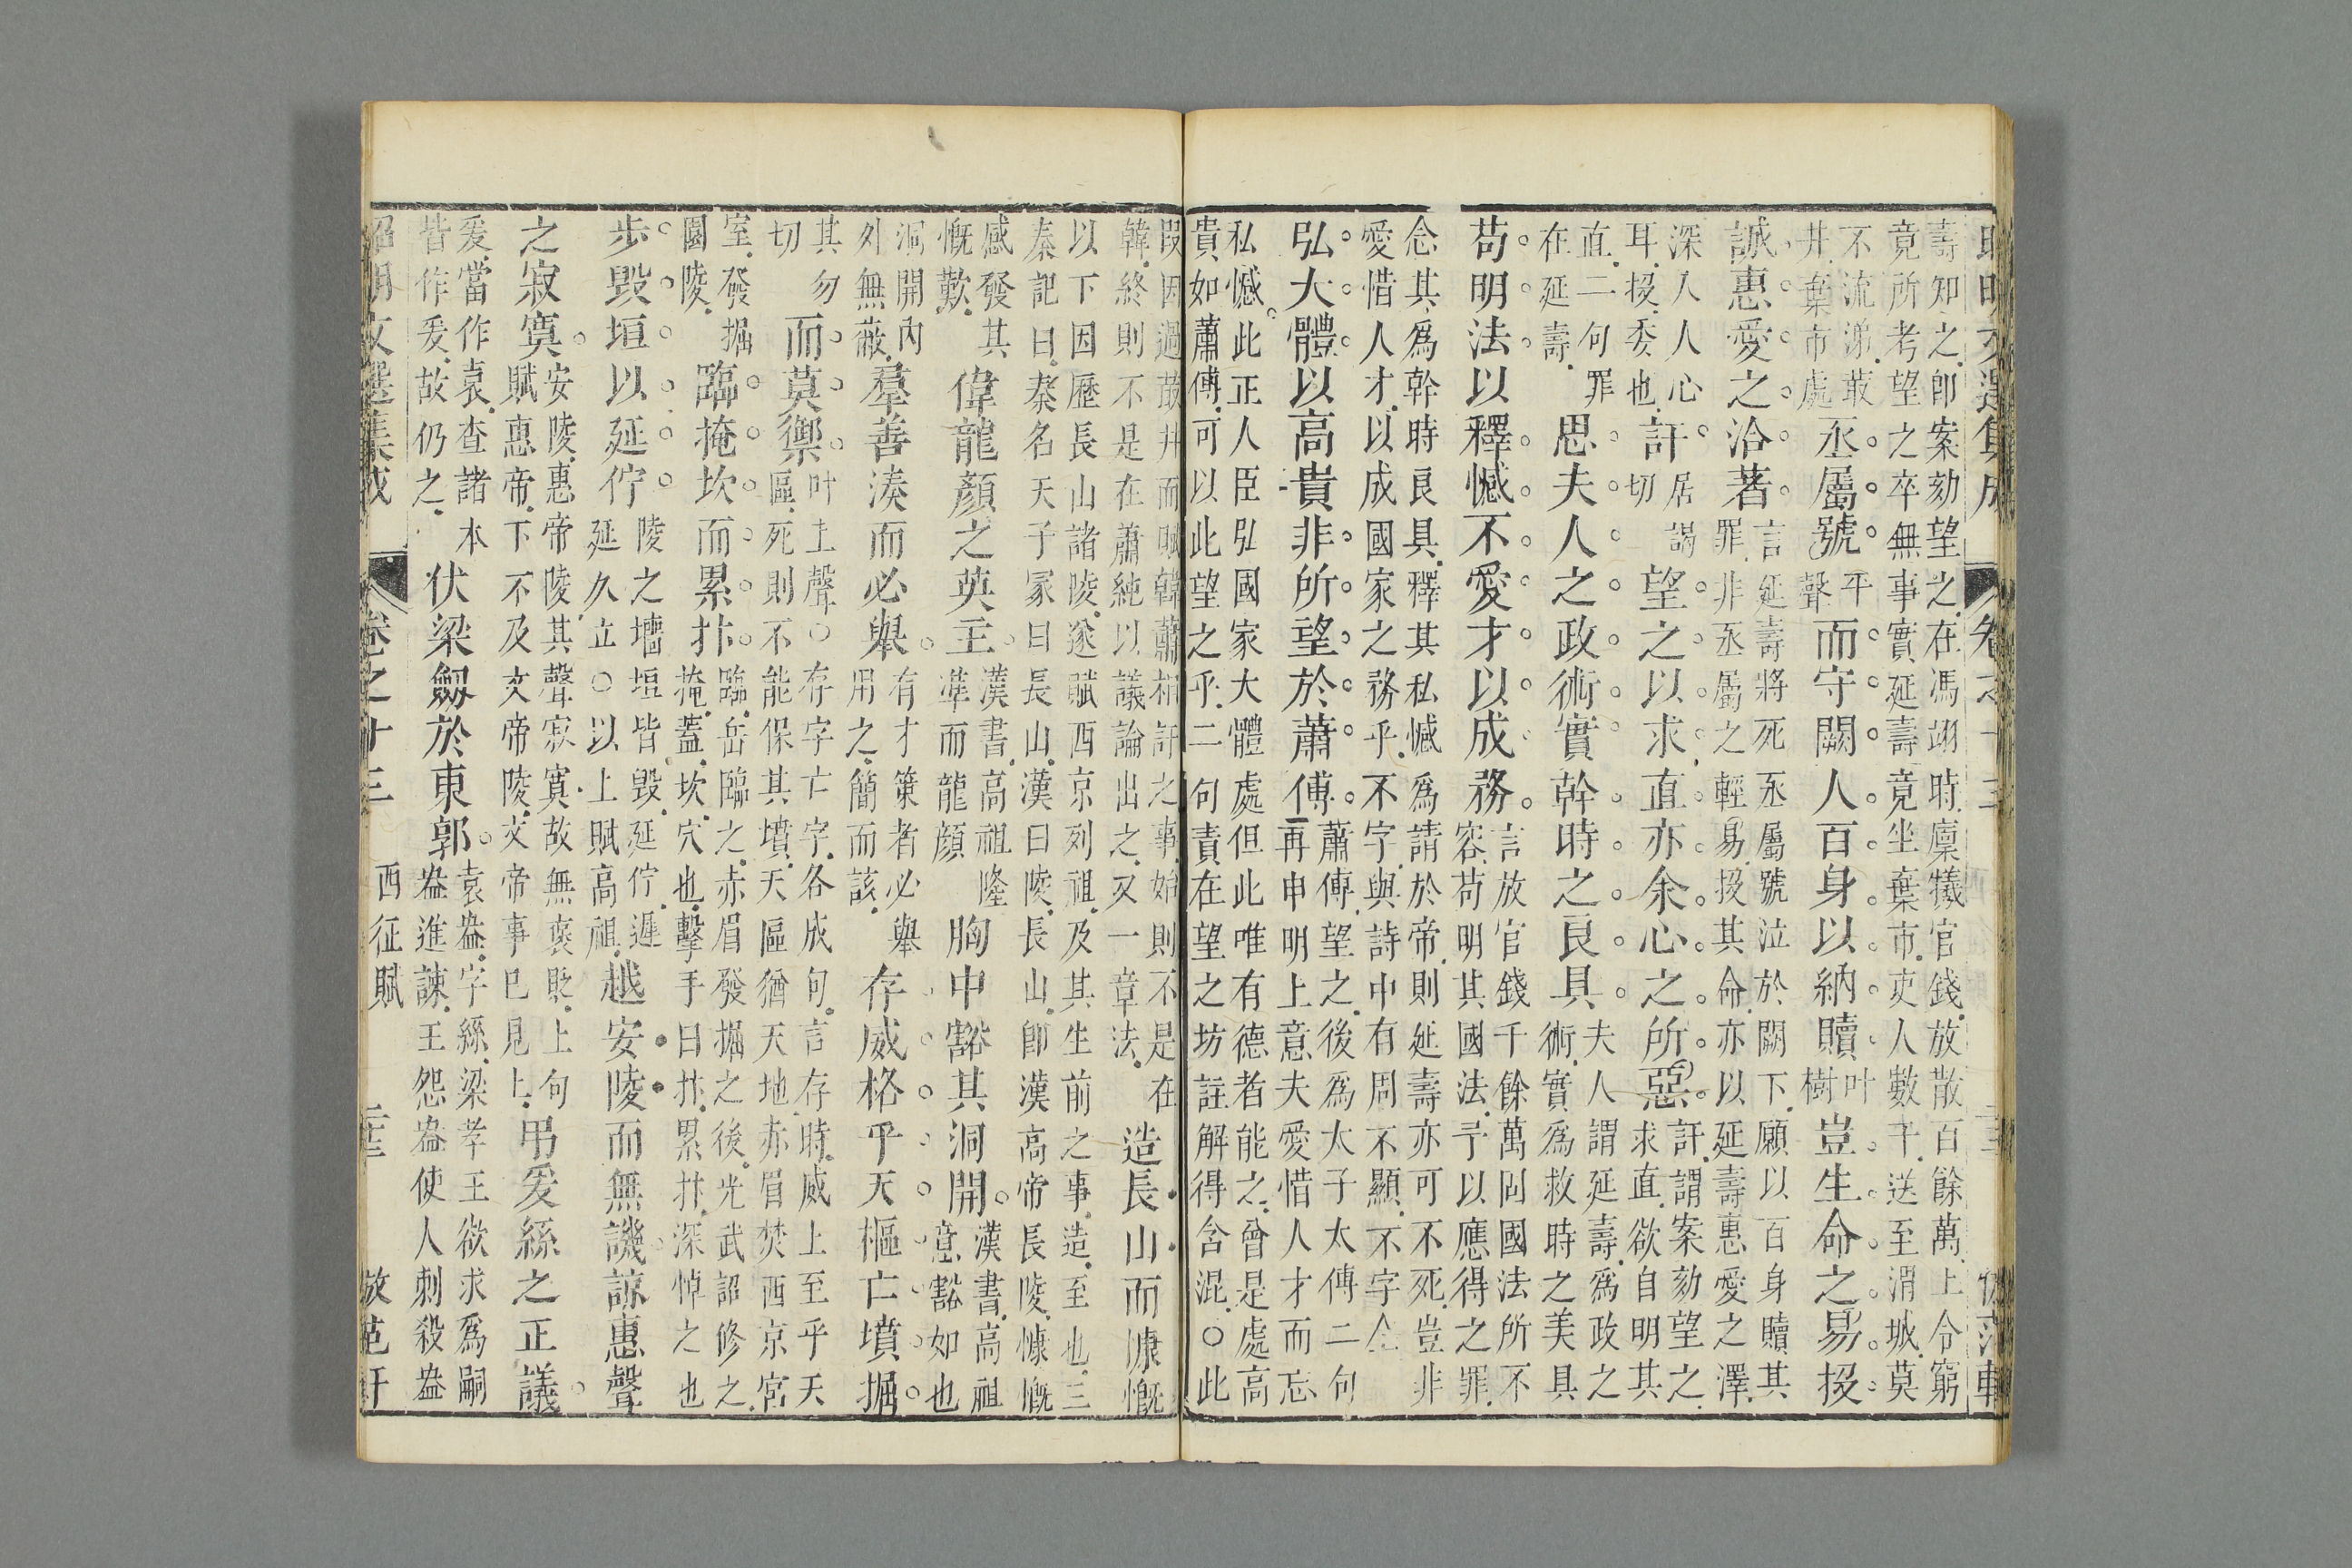 昭明文選集成 卷之十三
壽知之卽案劾望之在馮翊時廩犧官錢放散百餘萬上令窮
竟所考望之卒無事實延壽竟坐棄市吏人數千送至渭城莫
不流涕敢 井棄市處 丞屬號 平聲 而守闕人百身以納贖 叶樹 豈生命之易投
誠惠愛之洽著 言延壽將死丞屬號泣於闕下願以百身贖其 罪非丞屬之輕易投其命亦以延壽惠愛之澤
深人人心 耳投委也 訐 居謁切 望之以求直亦余心之所惡 訐謂案劾望之 求直欲自明其
直二句罪 在延壽 思夫人之政術實幹時之良具 夫人謂延壽爲政之 術實爲救時之美具
苟明法以釋憾不愛才以成務 言放官錢千餘萬固國法所不 容苟明其國法予以應得之罪
念其爲幹時良具釋其私憾爲請於帝則延壽亦可不死豈非
愛惜人才以成國家之務乎不字與詩中有周不顯不字仝
弘大體以高貴非所望於蕭傅 蕭傅望之後爲太子太傅二句 再申明上意夫愛惜人才而忘
私憾此正人臣弘國家大體處但此唯有德者能之曾是處高
貴如蕭傅可以此望之乎二句責在望之坊註解得含混○此
段因過蕺井而賦韓蕭相訐之事始則不是在 韓終則不是在蕭純以議論出之又一章法 造長山而慷慨
以下因歷長山諸陵遂賦西京列祖及其生前之事造至也三
秦記曰秦名天子冢曰長山漢曰陵長山卽漢高帝長陵慷慨
感發其 慨歎 偉龍顏之英主 漢書高祖隆 準而龍顏 胸中豁其洞開 漢書高祖 意豁如也
洞開內 外無蔽 羣善湊而必舉 有才策者必舉 用之簡而該 存威格乎天樞亡墳掘
其勿切 而莫禦 叶上聲○存字亡字各成句言存時威上至乎天 區死則不能保其墳天區猶天地赤眉焚西京宮
室發掘 園陵 臨掩坎而累抃 臨岳臨之赤眉發掘之後光武詔修之 掩蓋坎穴也擊手曰抃累抃深悼之也
步毀垣以延佇 陵之墻垣皆毀延佇遲 延久立○以上賦高祖 越安陵而無譏諒惠聲
之寂寞 安陵惠帝陵其聲寂寞故無褒貶上句 賦惠帝下不及文帝陵文帝事已見上 弔爰絲之正議
爰當作袁查諸本 皆作爰故仍之 伏梁劒於東郭 袁盎字絲梁孝王欲求爲嗣 盎進諫王怨盎使人刺殺盎
昭明文選集成 卷之十三 西征賦